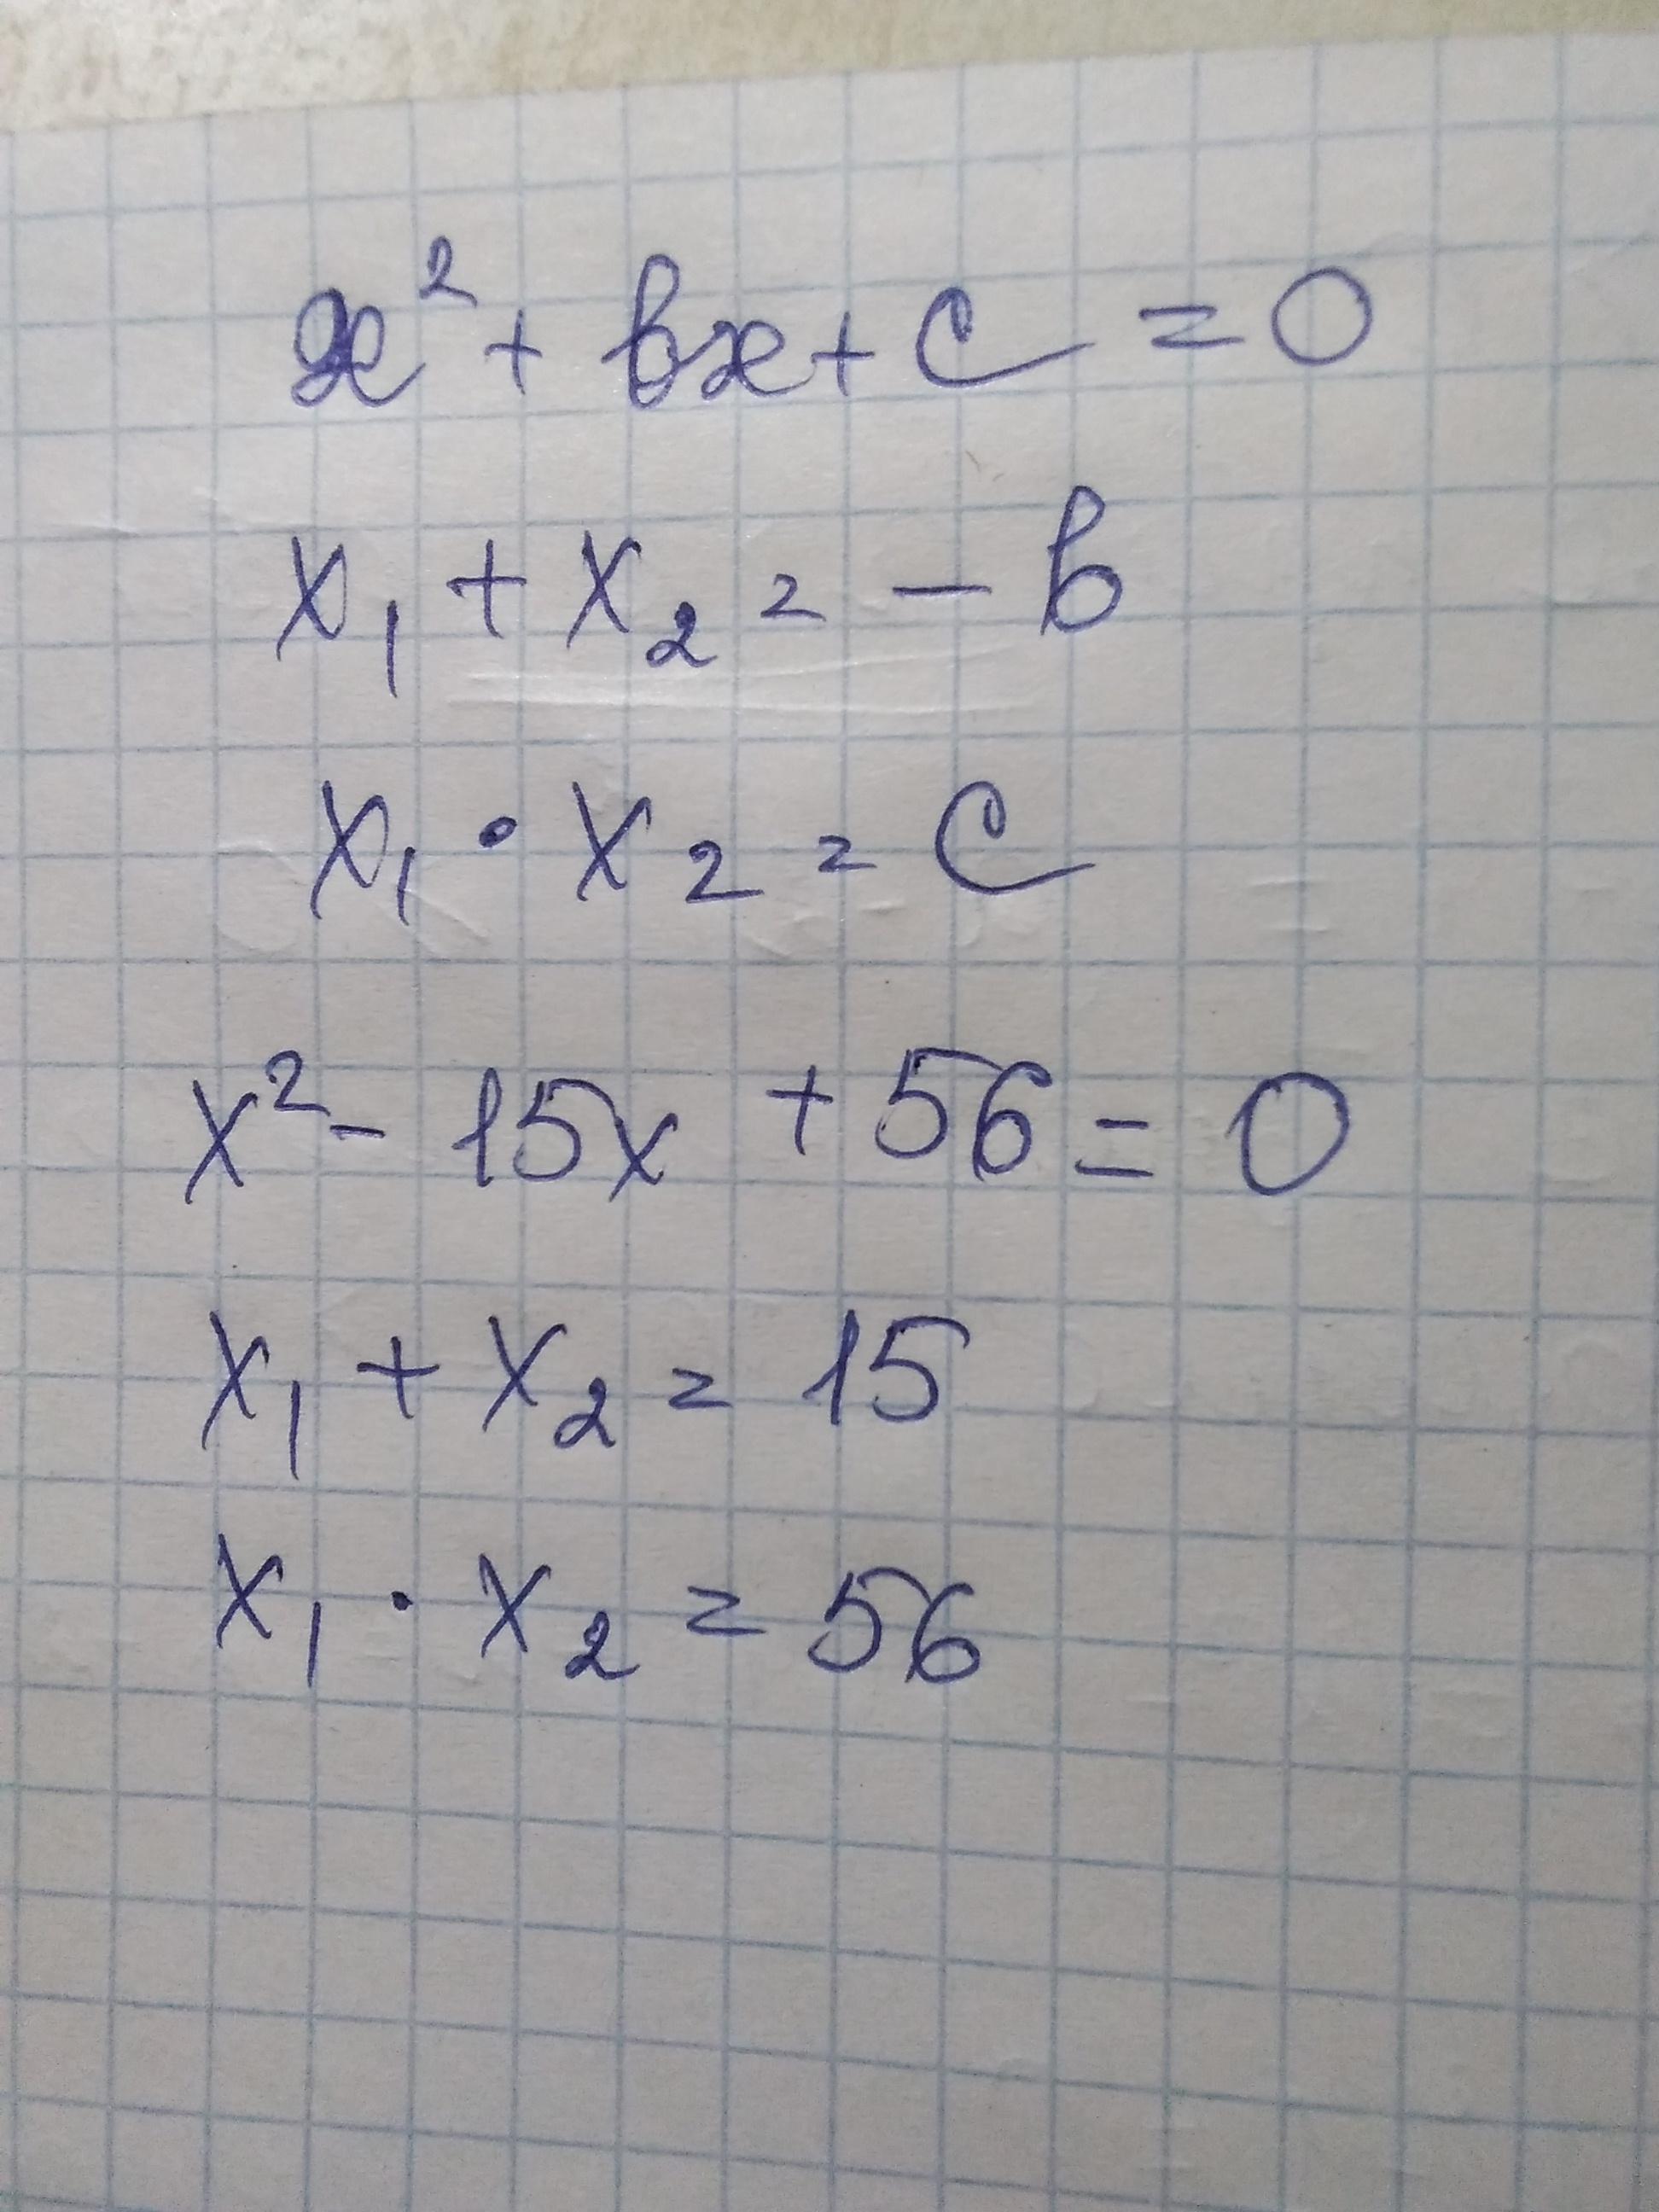 x² + bx + c = 0
x₁ + x₂ = - b
x₁ · x₂ = c
x² - 15x + 56 = 0
x₁ + x₂ = 15
x₁ · x₂ = 56